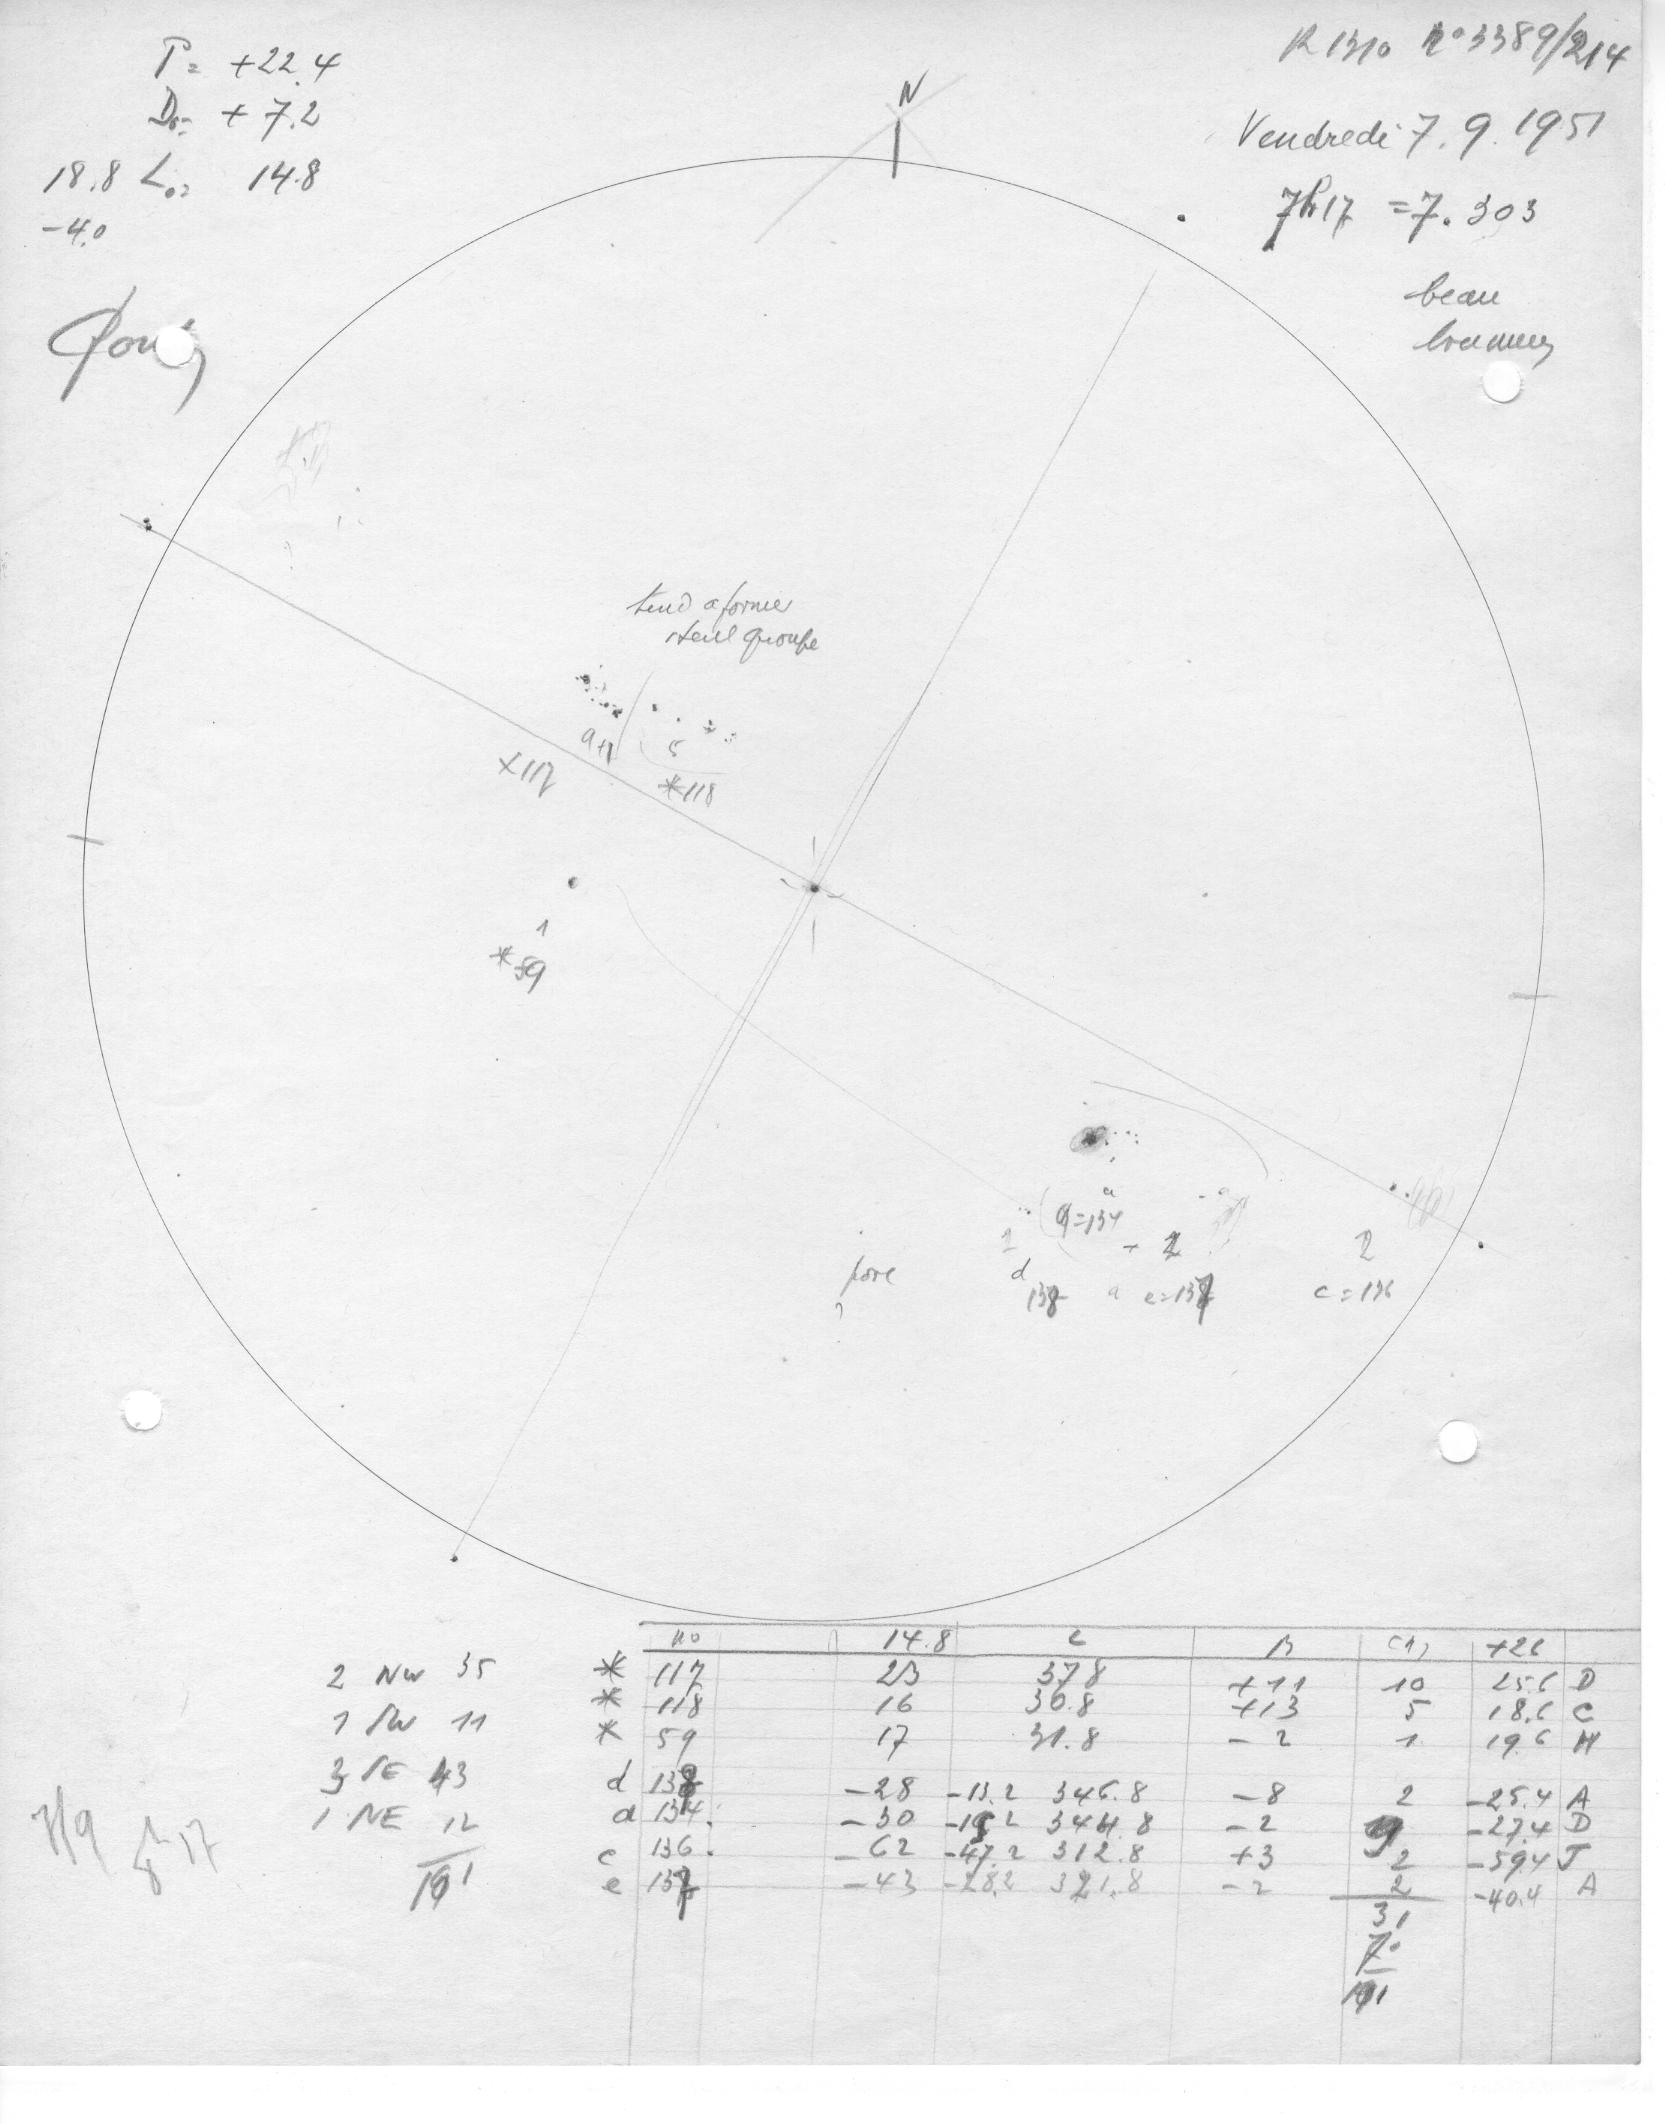 P= +22.4
D₀= +7.2
18.8 L₀= 14.8
-4.0
R1310 n°3389/214
Vendredi 7.9.1951
7h17 =7.303
beau
N
tend a former
seul groupe
9+1
5
×117
*118
1
*59
a
9=134
2
d
138
pore
?
2
e=137
2
c=136
no 14.8 L B (1) +26
2 NW 35 * 117 23 37.8 +11 10 25.6 D
* 118 16 30.8 +13 5 18.6 C
1 SW 11 * 59 17 31.8 -2 1 19.6 H
3 SE 43 d 138 -28 -13.2 346.8 -8 2 -25.4 A
1 NE 12 a 134. -30 -15.2 344.8 -2 9 -27.4 D
101 c 136. -62 -47.2 312.8 +3 2 -59.4 J
e 137 -43 -28.2 331.8 -2 2 -40.4 A
31
70
101
7/9 8h17